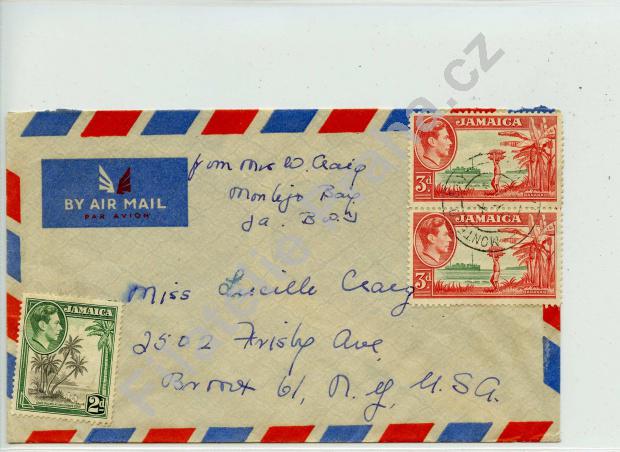 BY AIR MAIL
PAR AVION
from Mrs W. Craig
Montego Bay
Ja. B.W.I
JAMAICA
3d
JAMAICA
3d
MONT
Miss Lucille Craig
2502 Frisby Ave
Bronx 61, N.Y, U.S.A.
JAMAICA
2d
Filatelie Praha.cz